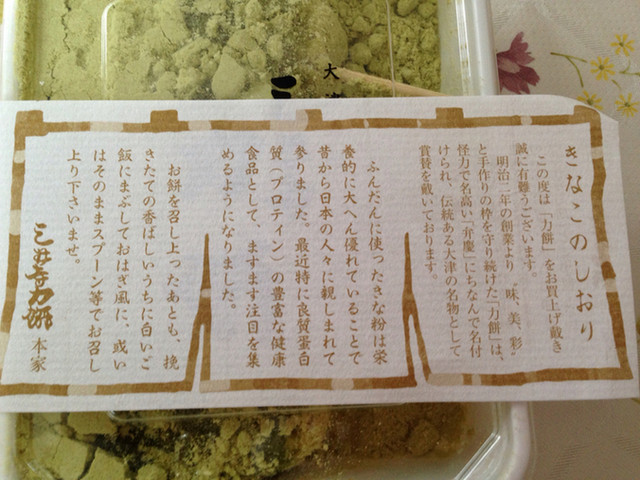 きなこのしおり
この度は「力餅」をお買上げ戴き
誠に有難うございます。
明治二年の創業より〝味、美、彩〟
と手作りの枠を守り続けた「力餅」は、
怪力で名高い「弁慶」にちなんで名付
けられ、伝統ある大津の名物として
賞賛を戴いております。
ふんだんに使ったきな粉は栄
養的に大へん優れていることで
昔から日本の人々に親しまれて
参りました。最近特に良質蛋白
質（プロテイン）の豊富な健康
食品として、ますます注目を集
めるようになりました。
お餅を召し上ったあとも、挽
きたての香ばしいうちに白いご
飯にまぶしておはぎ風に、或い
はそのままスプーン等でお召し
上り下さいませ。
三井寺力餅 本家
大津
三